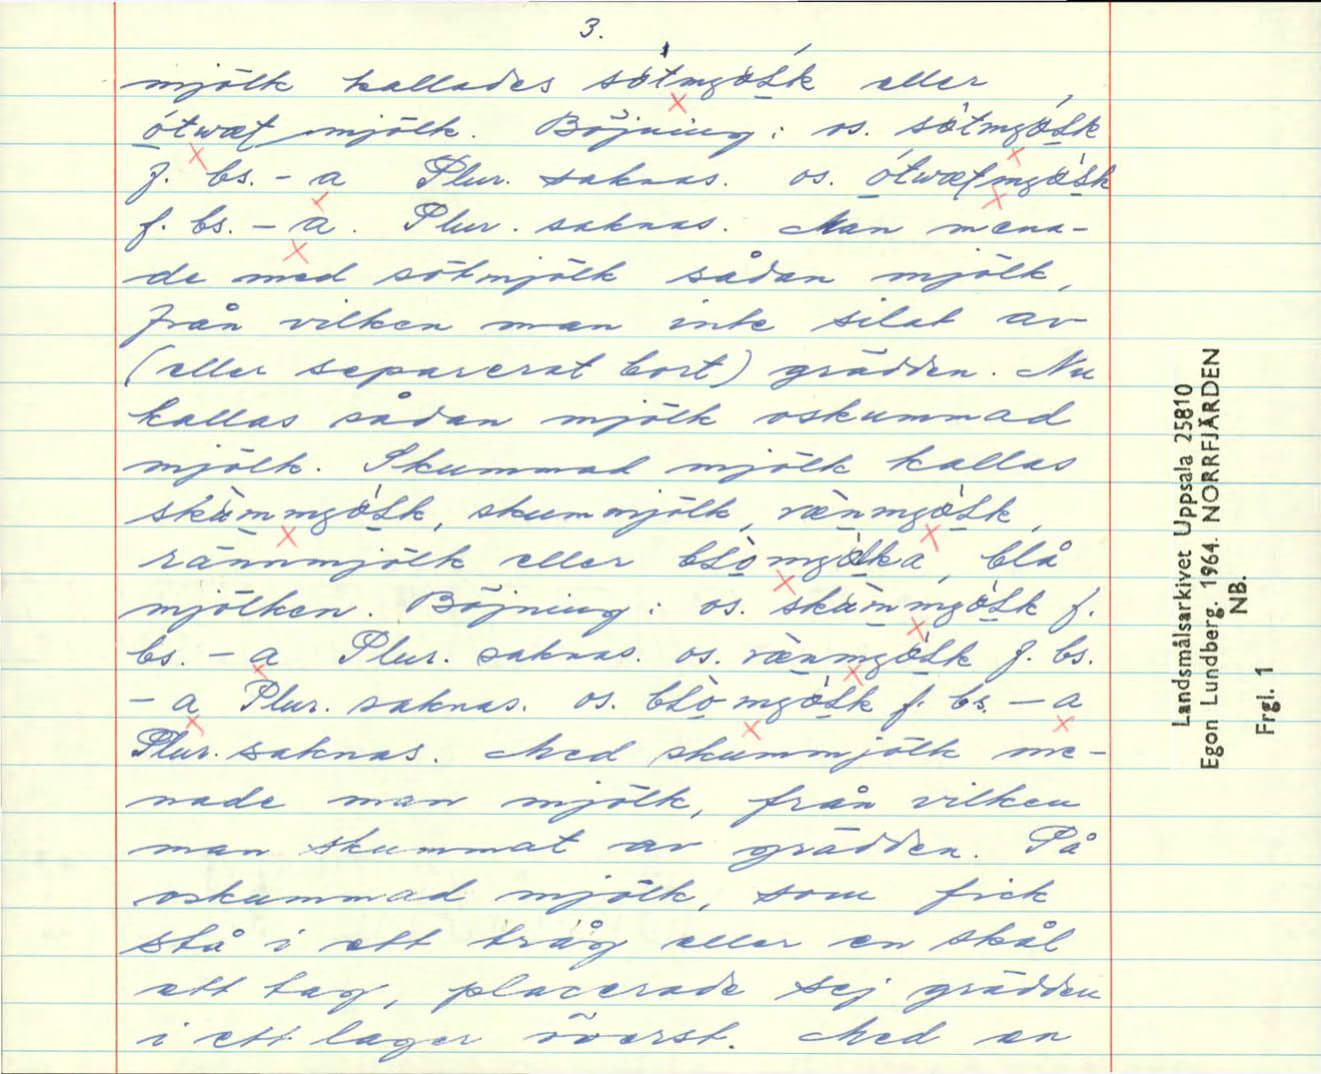 3.
mjölk kallades sötmȷöłk eller
ótwæt mjölk. Böjning: os. sötmȷöłk
f. bs. - a Plur. saknas. os. ótwætmȷöłk
f. bs. - a. Plur. saknas. Man mena-
de med sötmjölk sådan mjölk,
från vilken man inte silat av
(eller separerat bort) grädden. Nu
kallas sådan mjölk oskummad
mjölk. Skummad mjölk kallas
skum mjölk,
rännmjölk eller blå
mjölken. Böjning: os. f.
bs. - a Plur. saknas. os. f. bs.
- a Plur. saknas. os. f. bs. - a
Plur. saknas. Med skummjölk me-
nade man mjölk, från vilken
man skummat av grädden. På
oskummad mjölk, som fick
stå i ett tråg eller en skål
ett tag, placerade sej grädden
i ett lager överst. Med en
Landsmålsarkivet Uppsala 25810
Egon Lundberg. 1964. NORRFJÄRDEN
NB.
Frgl. 1